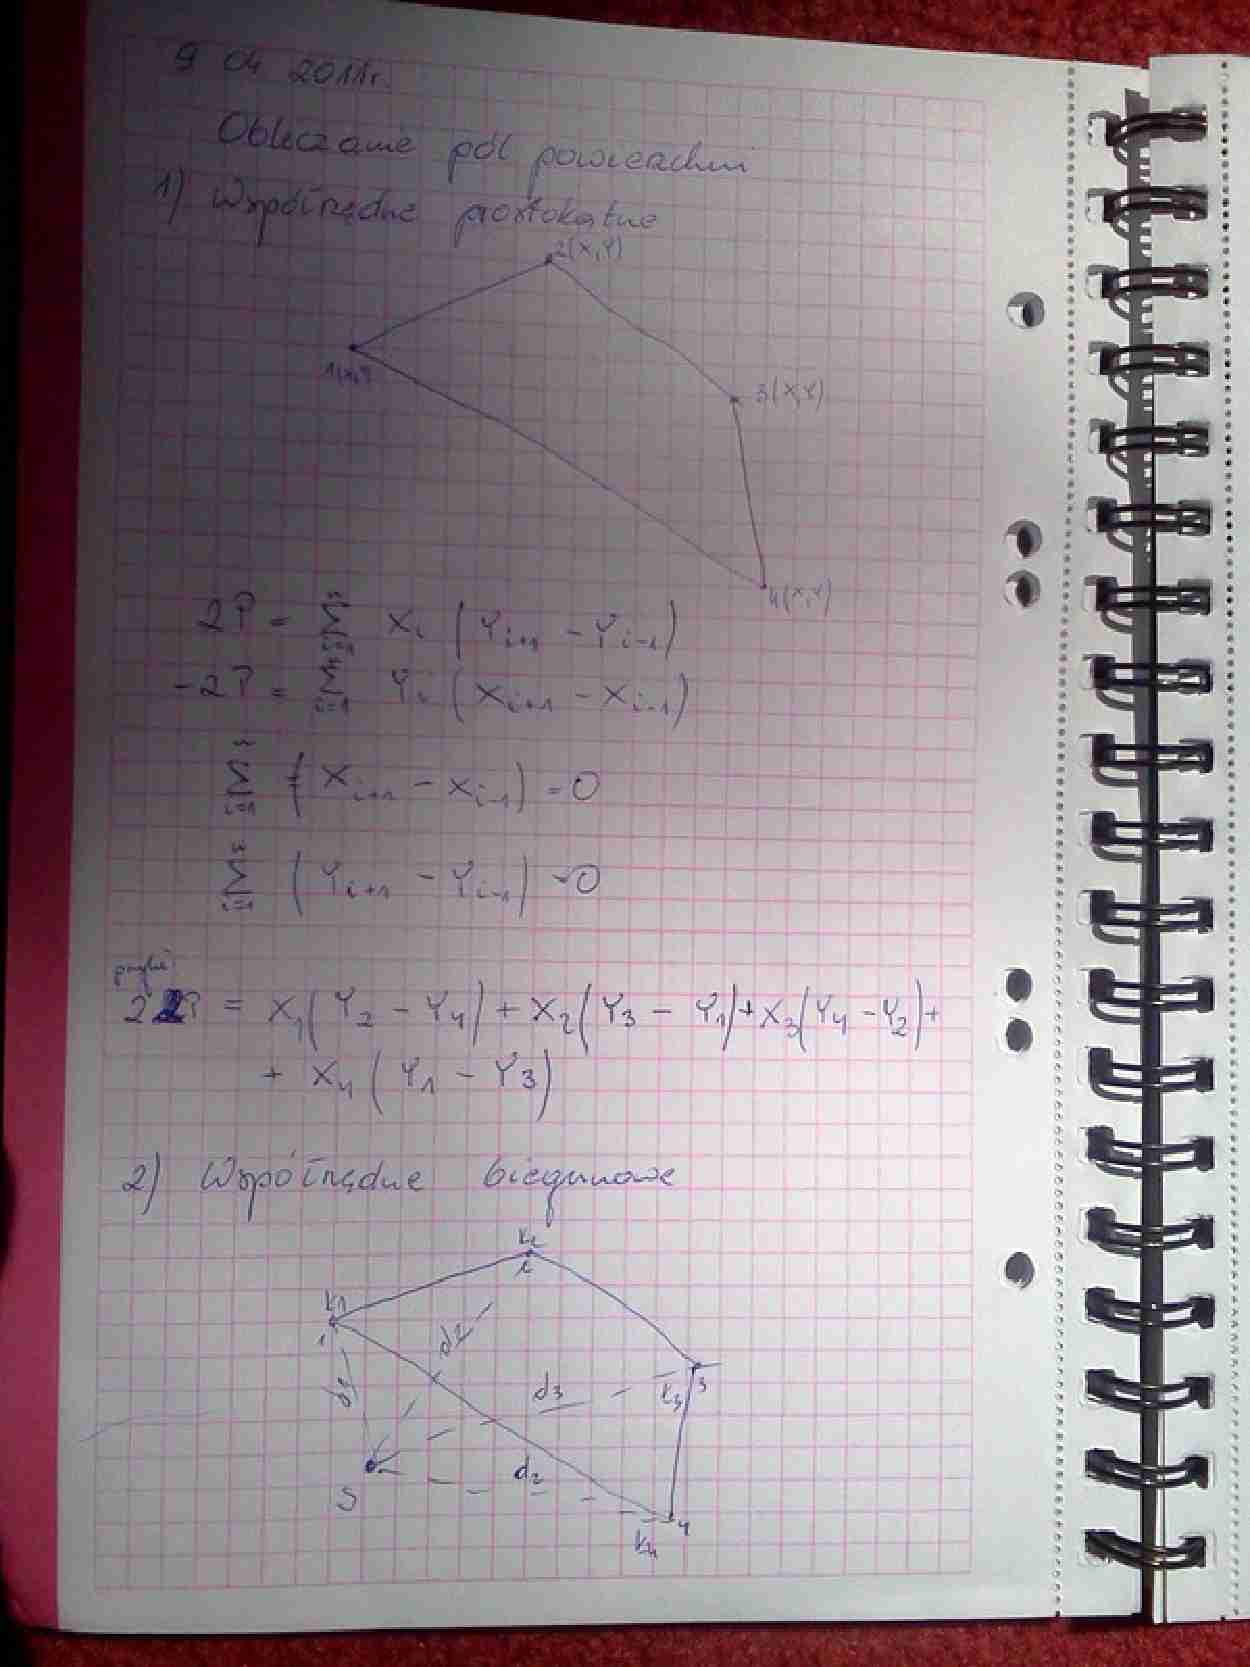 9 04 2011r.
Obliczanie pól powierzchni
1) Współrzędne prostokątne
2(X,Y)
1(X,Y)
3(X,Y)
4(X,Y)
2P = Σ i=1 Xi (Yi+1 - Yi-1)
-2P = Σ i=1 Yi (Xi+1 - Xi-1)
Σ i=1 (Xi+1 - Xi-1) = 0
Σ i=1 (Yi+1 - Yi-1) = 0
2P = X1(Y2 - Y4) + X2(Y3 - Y1) + X3(Y4 - Y2) +
+ X4 (Y1 - Y3)
2) Współrzędne biegunowe
K2
2
K1
1
d2
d1
d3
K3 3
S
d2
K4 4